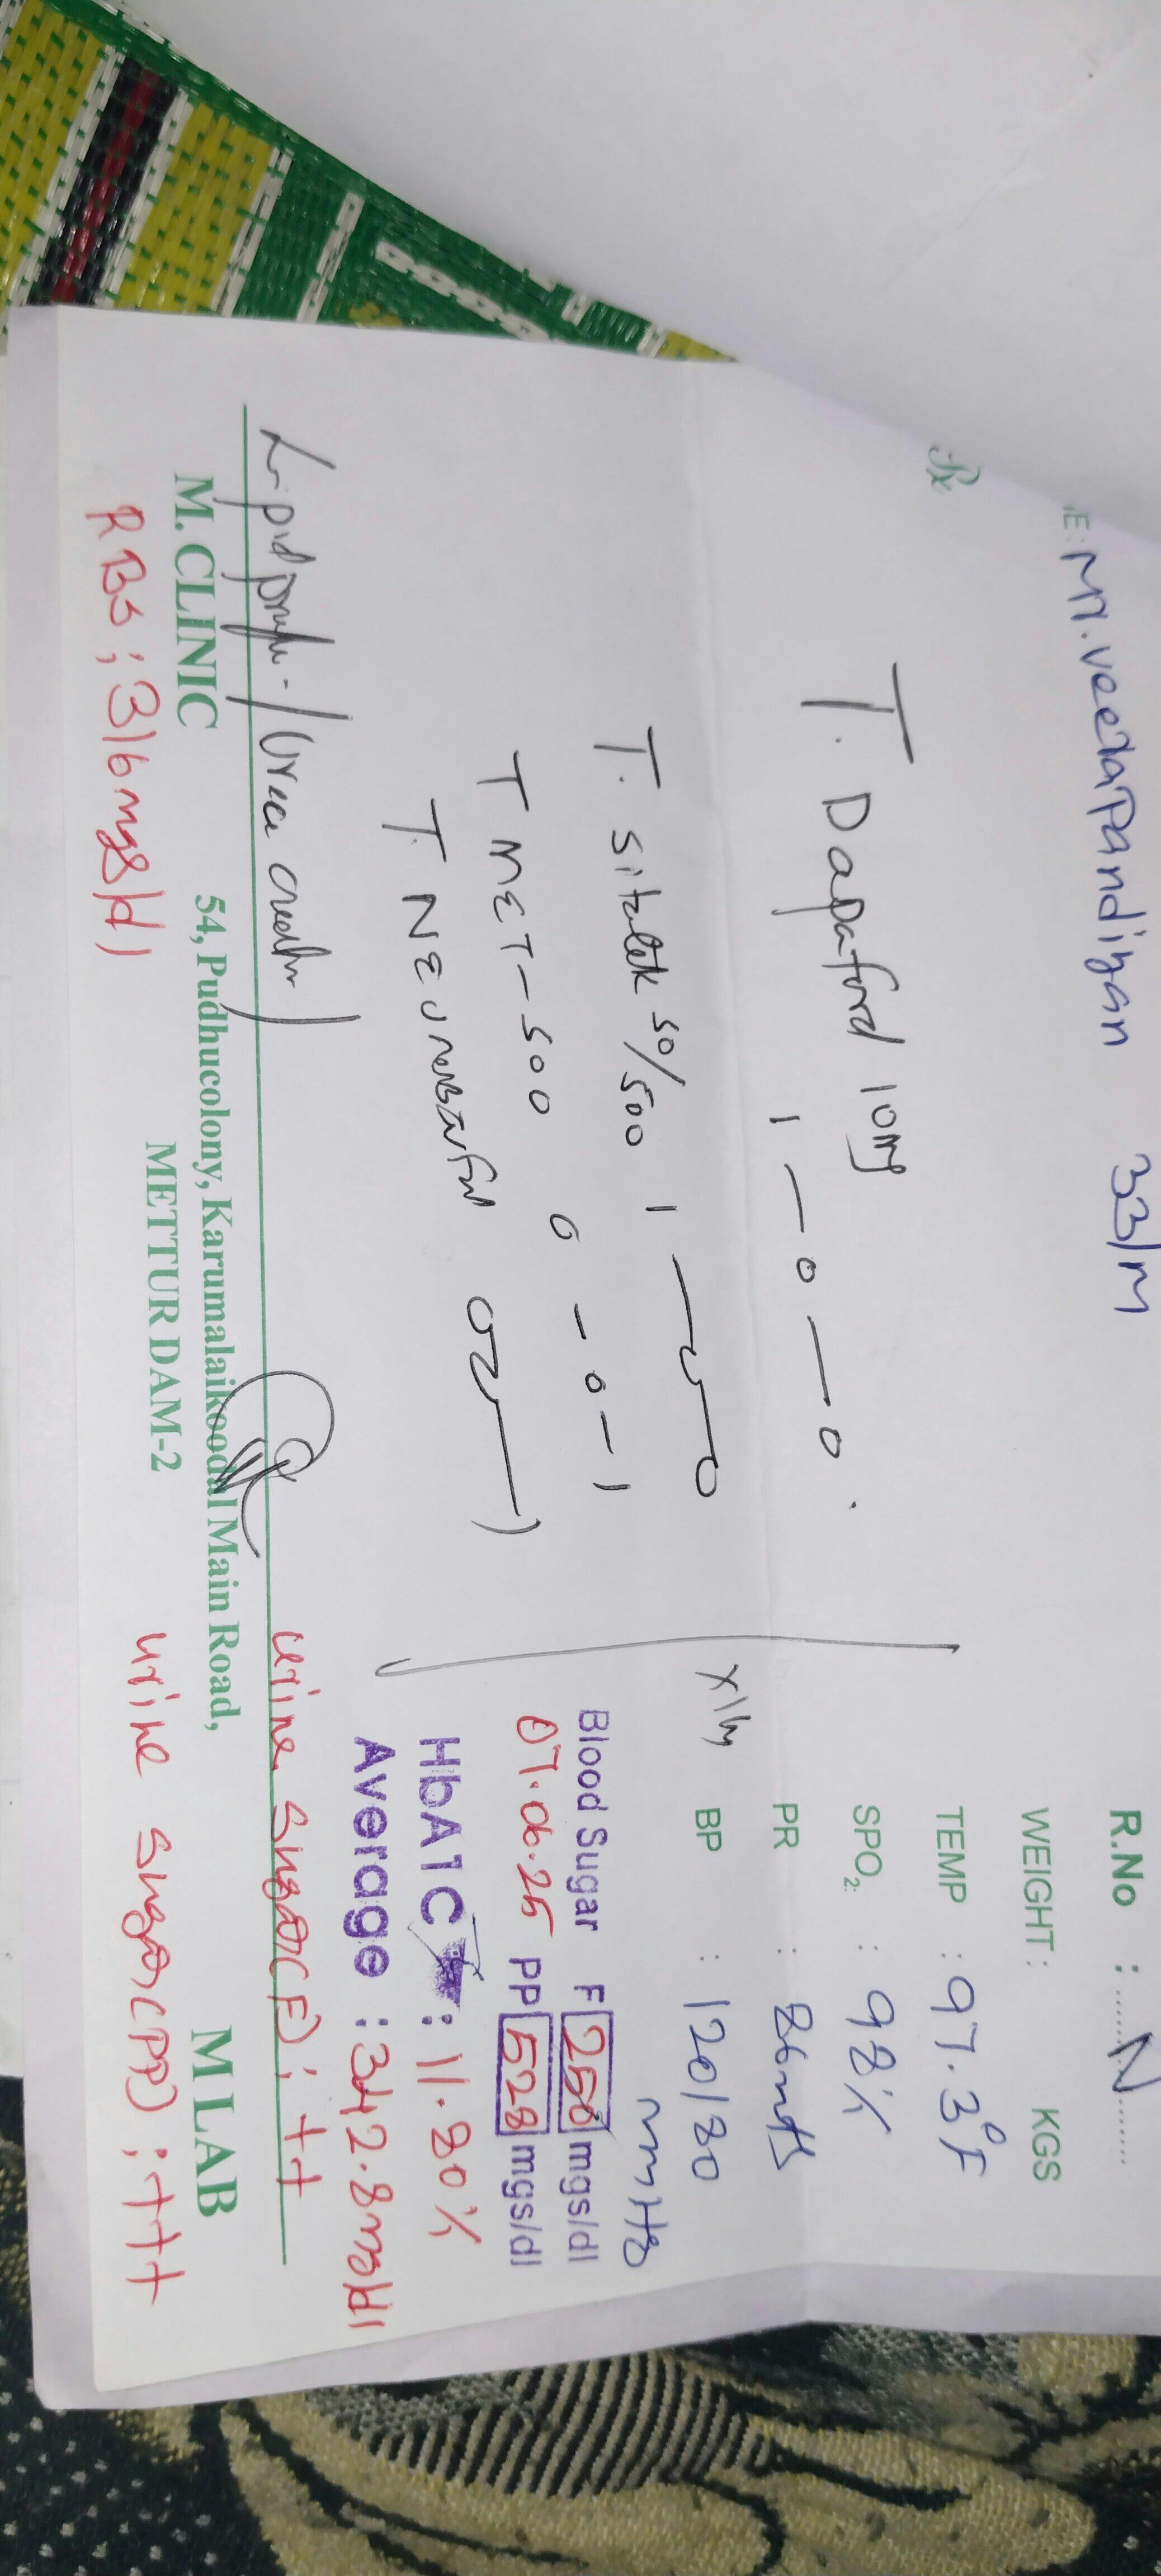 R.No : N
NE: Mr. veeraPandiyan 33/M
WEIGHT : KGS
Rx
TEMP : 97.3°F
T. Dapaford 10mg
1 — 0 — 0
SPO2: : 98%
PR : 86mts
BP : 120/80 mmHg
T. sitalek 50/500
T MET-500 0 - 0 - 1
Blood Sugar F 250 mgs/dl
07.06.25 PP 528 mgs/dl
HbA1C : 11.80%
Average : 342.8mg/dl
Lipid profile / Urea
urine sugar(F); ++
M. CLINIC
54, Pudhucolony, Karumalaikoodal Main Road,
METTUR DAM-2
M LAB
RBS ; 316mgs/dl
urine sugar(PP) ; +++